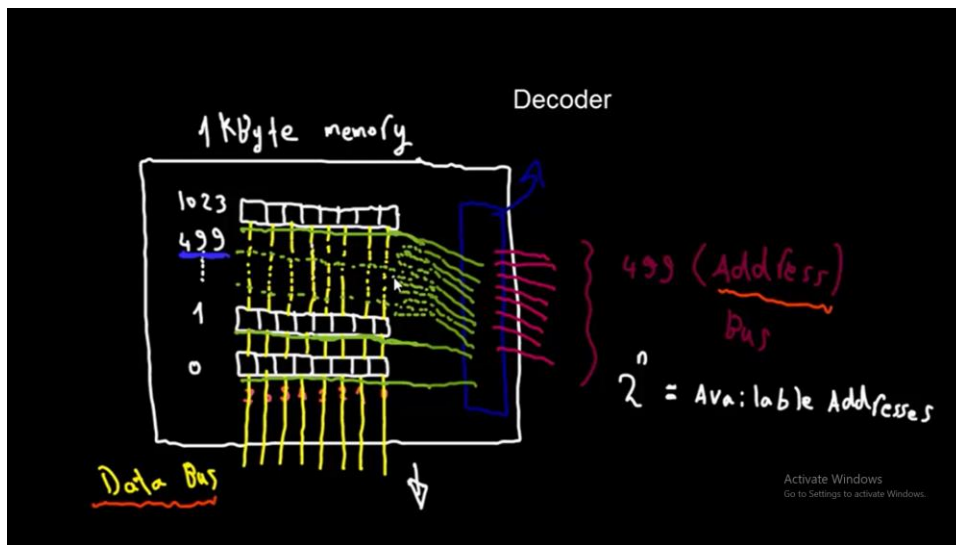 Decoder
1 KByte memory
1023
499
1
0
499 (Address)
Bus
2^n = Available Addresses
7 6 5 4 3 2 1 0
Data Bus
Activate Windows
Go to Settings to activate Windows.